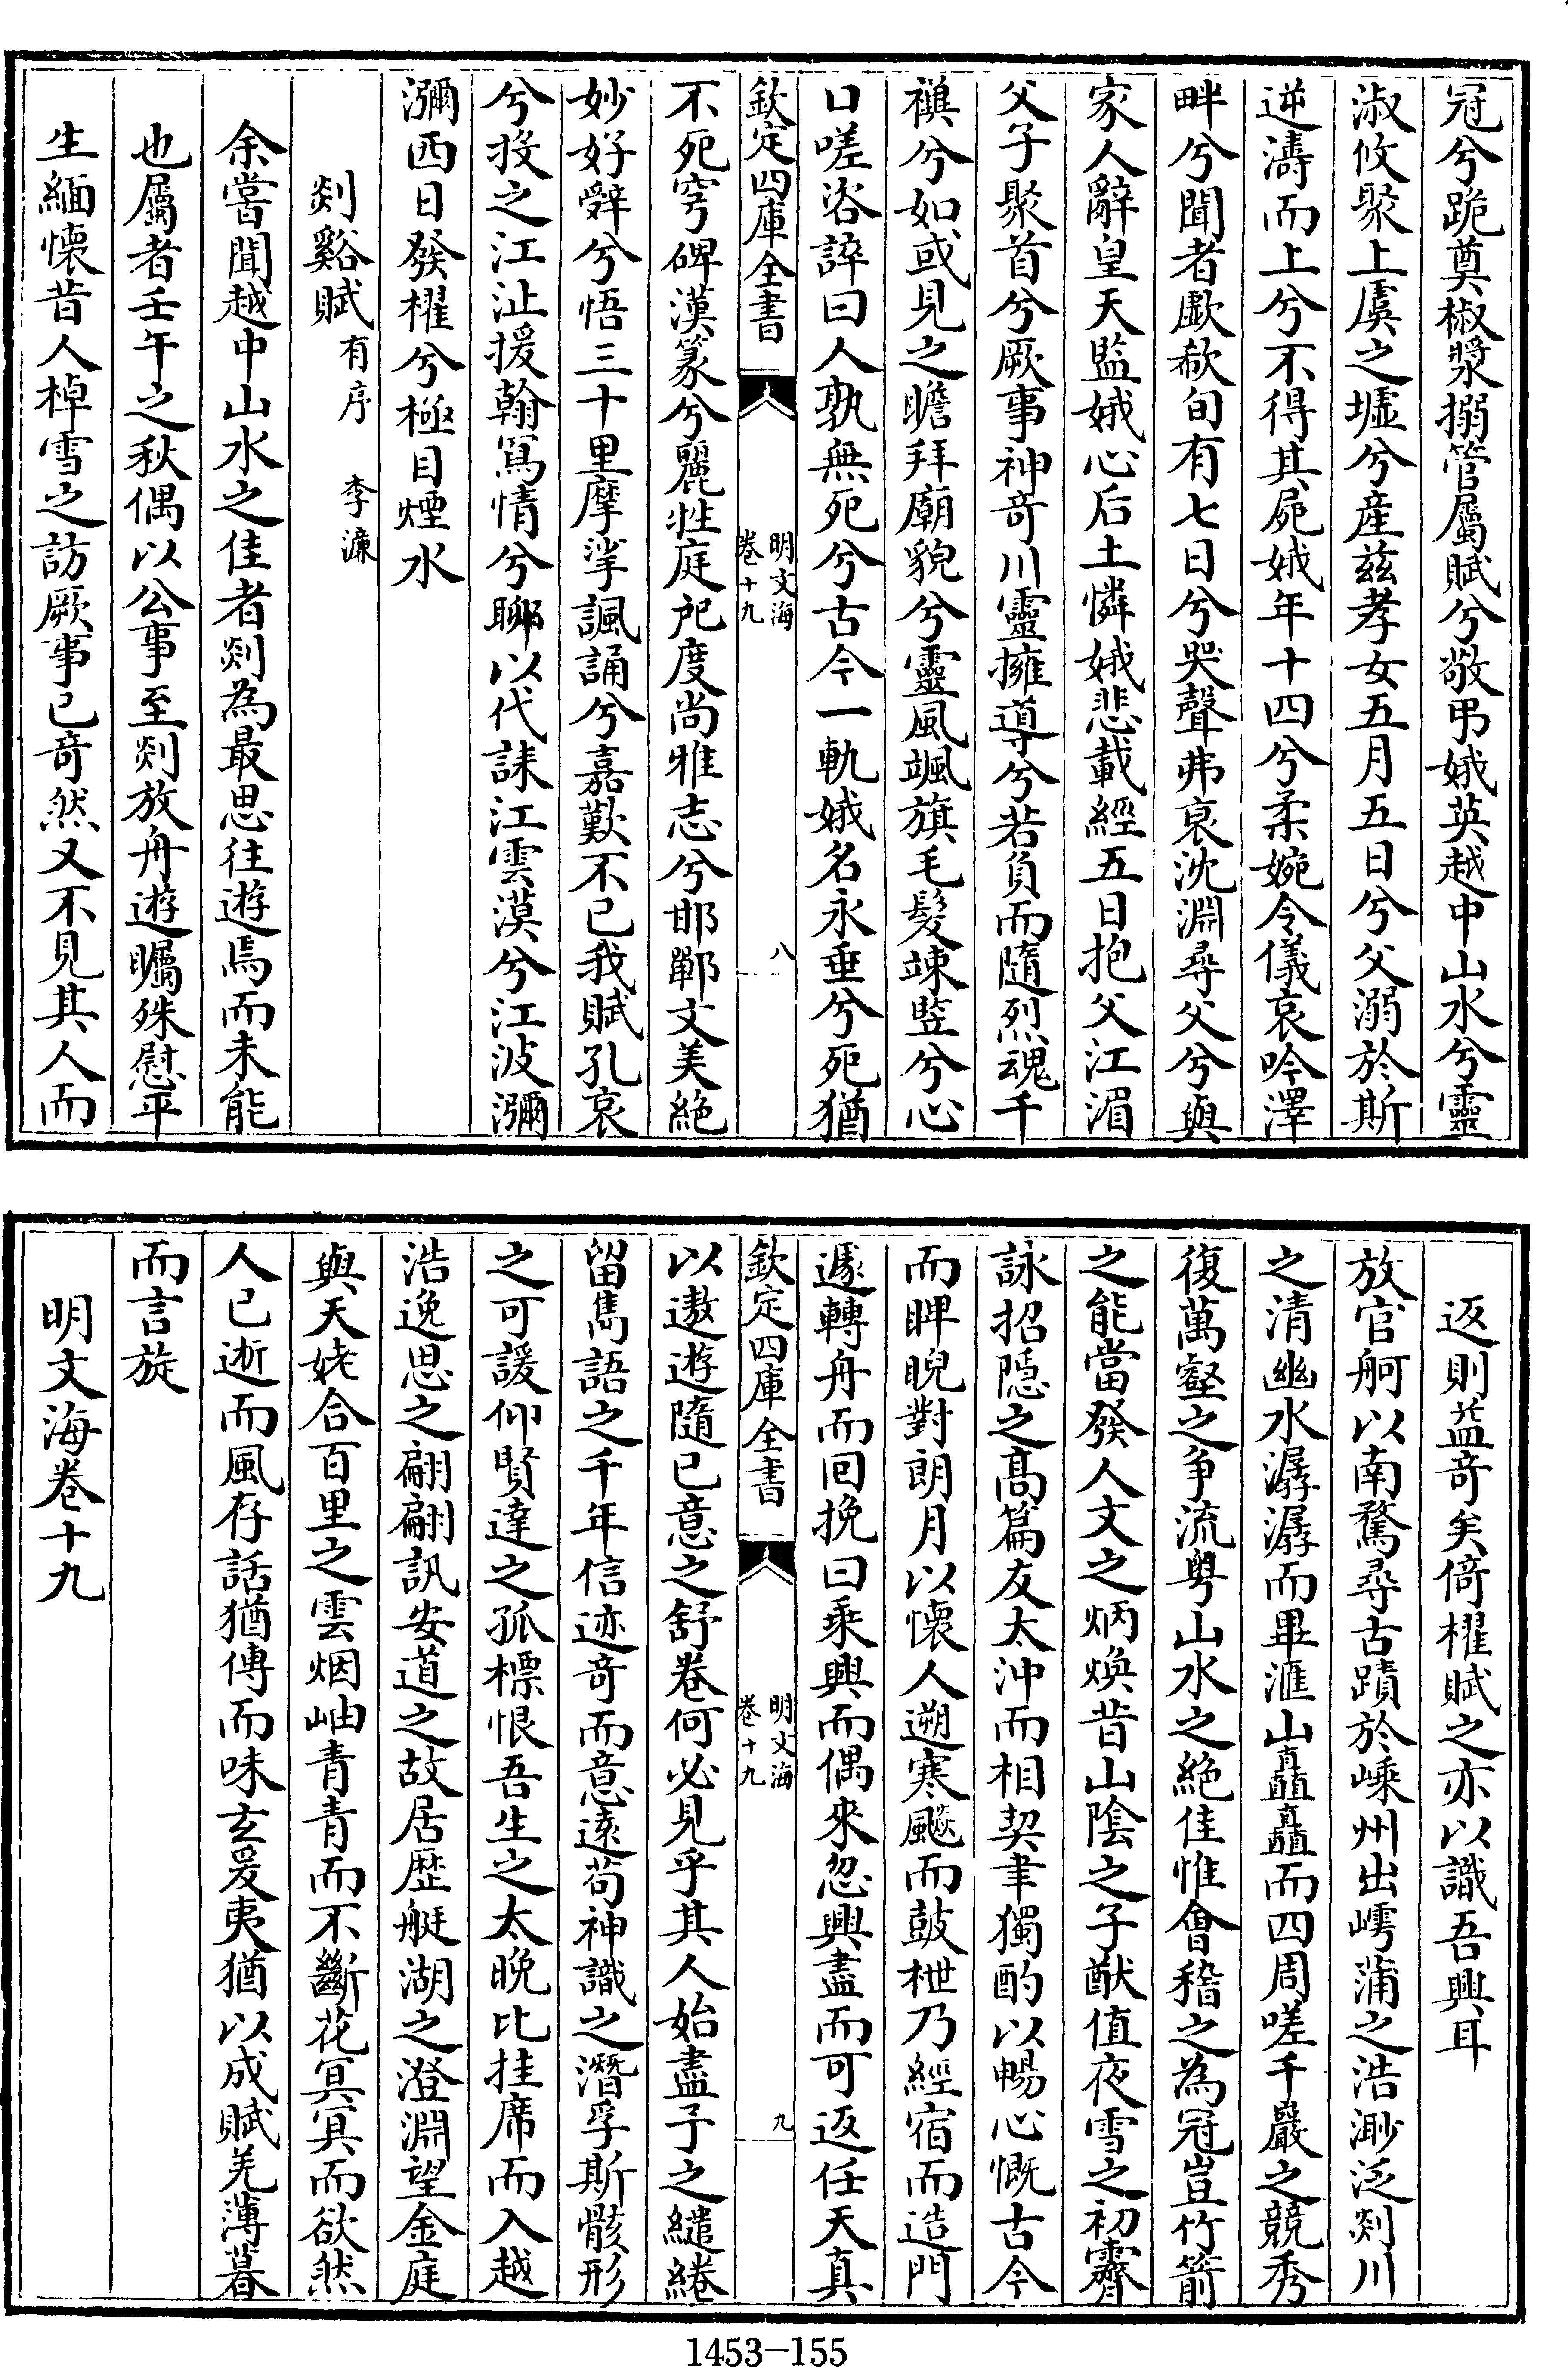 冠兮跪奠椒漿搦管屬賦兮敬弔娥英越中山水兮靈
淑攸聚上虞之墟兮產茲孝女五月五日兮父溺於斯
逆濤而上兮不得其屍娥年十四兮柔婉令儀哀吟澤
畔兮聞者歔欷旬有七日兮哭聲弗哀沈淵尋父兮與
家人辭皇天監娥心后土憐娥悲載經五日抱父江湄
父子聚首兮厥事神竒川靈擁導兮若負而隨烈魂千
禩兮如或見之瞻拜廟貌兮靈風颯旗毛髮竦豎兮心
口嗟咨誶曰人孰無死兮古今一軌娥名永垂兮死猶
欽定四庫全書
明文海
卷十九
八
不死穹碑漢篆兮麗牲庭戺度尚雅志兮邯鄲文美絕
妙好辤兮悟三十里摩挲諷誦兮嘉歎不已我賦孔哀
兮投之江沚援翰寫情兮聊以代誄江雲漠兮江波瀰
瀰西日發櫂兮極目煙水
剡谿賦有序 李濂
余嘗聞越中山水之佳者剡為最思往遊焉而未能
也屬者壬午之秋偶以公事至剡放舟遊矚殊慰平
生緬懷昔人棹雪之訪厥事已竒然又不見其人而
返則益竒矣倚櫂賦之亦以識吾興耳
放官舸以南騖尋古蹟於嵊州出嶀蒲之浩渺泛剡川
之清幽水潺潺而畢滙山矗矗而四周嗟千巖之競秀
復萬壑之爭流粤山水之絕佳惟會稽之為冠豈竹箭
之能當發人文之炳煥昔山陰之子猷值夜雪之初霽
詠招隱之髙篇友太沖而相契聿獨酌以暢心慨古今
而睥睨對朗月以懷人遡寒飇而鼓枻乃經宿而造門
遽轉舟而囘挽曰乘興而偶來忽興盡而可返任天真
欽定四庫全書
明文海
卷十九
九
以遨遊隨已意之舒卷何必見乎其人始盡予之繾綣
留雋語之千年信迹竒而意遠茍神識之潛孚斯骸形
之可諼仰賢達之孤標恨吾生之太晚比挂席而入越
浩逸思之翩翩訊安道之故居歴艇湖之澄淵望金庭
與天姥合百里之雲烟岫青青而不斷花冥冥而欲然
人已逝而風存話猶傳而味玄爰夷猶以成賦羌薄暮
而言旋
明文海卷十九
1453-155